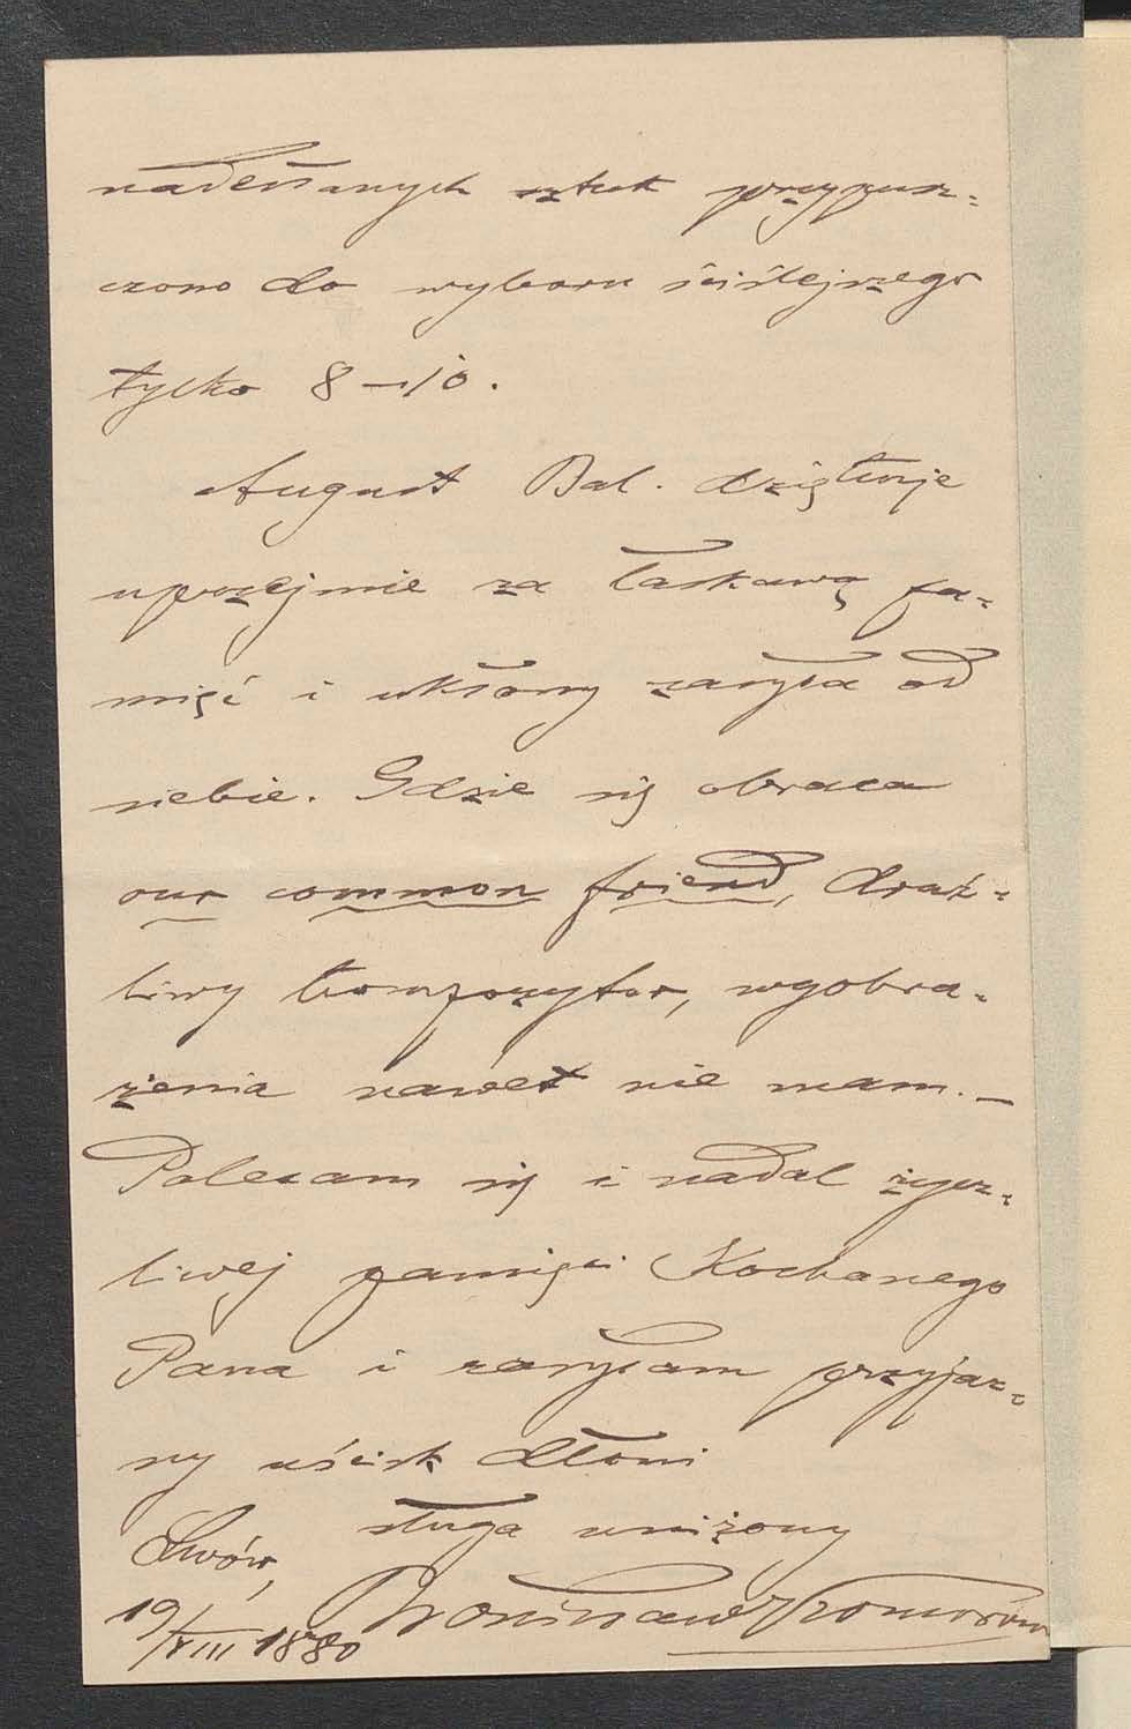 nadesłanych sztuk przypusz-
czono do wyboru ściślejszego
tylko 8–10.
August Bal. dziękuje
uprzejmie za łaskawą pa-
mięć i ukłony zasyła od
siebie. Gdzie się obraca
our common friend, draż-
liwy kompozytor, wyobra-
żenia nawet nie mam. –
Polecam się i nadal życz-
liwej pamięci Kochanego
Pana i zasyłam przyjaz-
ny uścisk dłoni
sługa uniżony
Lwów,
Bronisław Komorow
19/VIII 1880